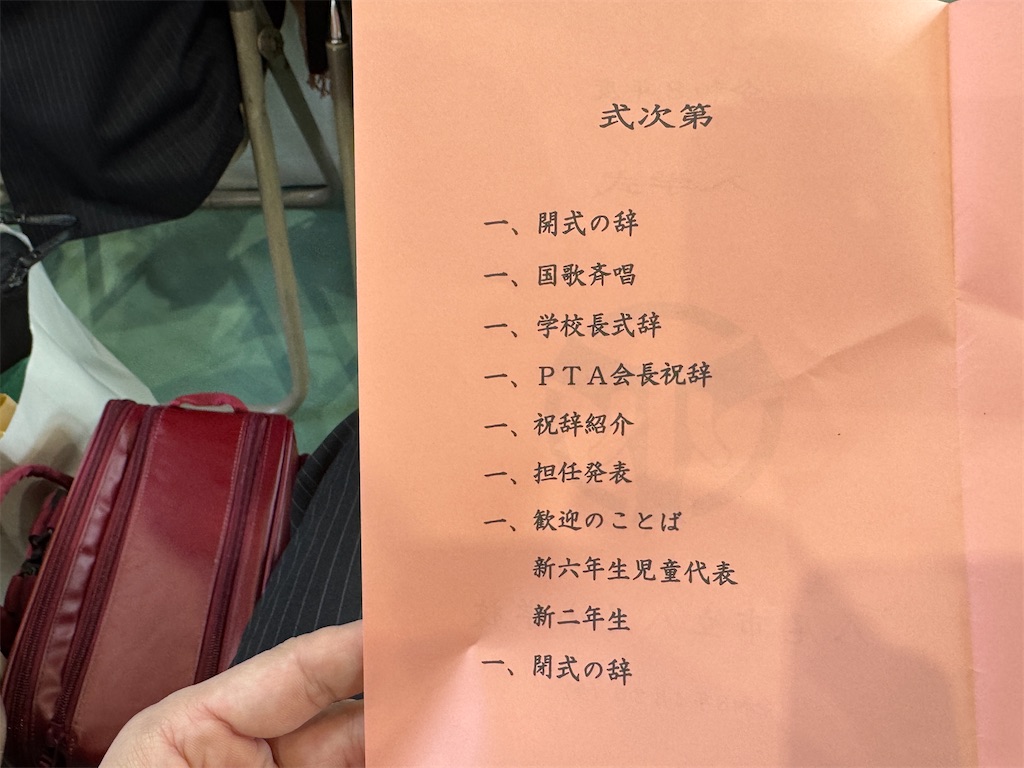 式次第
一、開式の辞
一、国歌斉唱
一、学校長式辞
一、ＰＴＡ会長祝辞
一、祝辞紹介
一、担任発表
一、歓迎のことば
新六年生児童代表
新二年生
一、閉式の辞